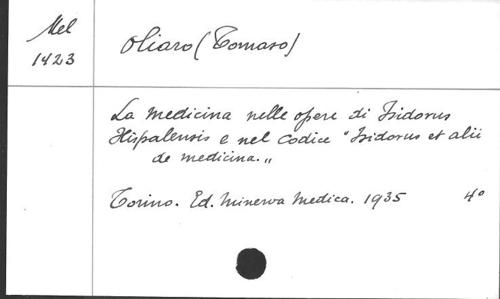 Mel
1423
Oliaro (Tomaso)
La medicina nelle opere di Isidorus
Hispalensis e nel codice "Isidorus et alii
de medicina."
Torino. Ed. Minerva Medica. 1935 4°